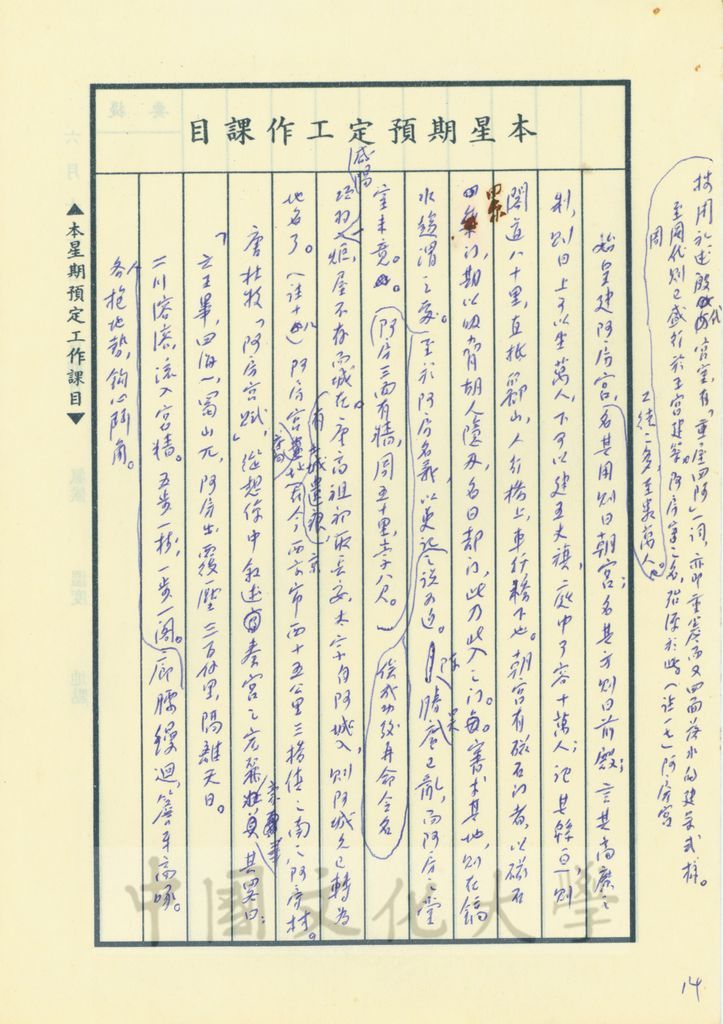 本星期預定工作課目
採用於述殷代宮室,有「重屋四阿」一詞,亦即重簷而又四面落水的建築式樣。
至周代則已盛行於王宮建築。阿房宮之名,殆源於此(註一七)阿房宮
工徒之多,至數萬人。
始皇建阿房宮,名其用則曰朝宮;名其方則曰前殿;言其高廣之
制,則曰上可以坐萬人,下可以建五丈旗,庭中可容十萬人;記其緜亘,則
閣道八十里,直抵酈山,人行橋上,車行橋下也。朝宮有磁石門者,以磁石
為門,期以吸脅胡人隱刃,名曰卻門,此乃此入之門。審求其地,則在鎬
水趨渭之處。至於阿房名義,以史記之說為近。陳勝亂,而阿房之
室未竟。(阿房三面有牆,周五十里,高八尺。)俟成功後再命令名
咸陽
項羽一炬,屋不存而城在。唐高祖初取長安,太宗自阿城入,則阿城久已轉為
地名了。(註十八)阿房宮今西京市西十五公里三橋住之南「阿房村」。
有古城遺痕
唐杜牧「阿房宮賦」從想像中敘述秦宮之宏麗其畧曰:
「六王畢,四海一,蜀山兀,阿房出,覆壓三百餘里,隔離天日。
二川溶溶,流入宮牆。五步一樓,一步一閣。廊腰縵迴,簷牙高啄。
各抱地勢,鈎心鬥角。
▲本星期預定工作課目▼
中國文化大學
14